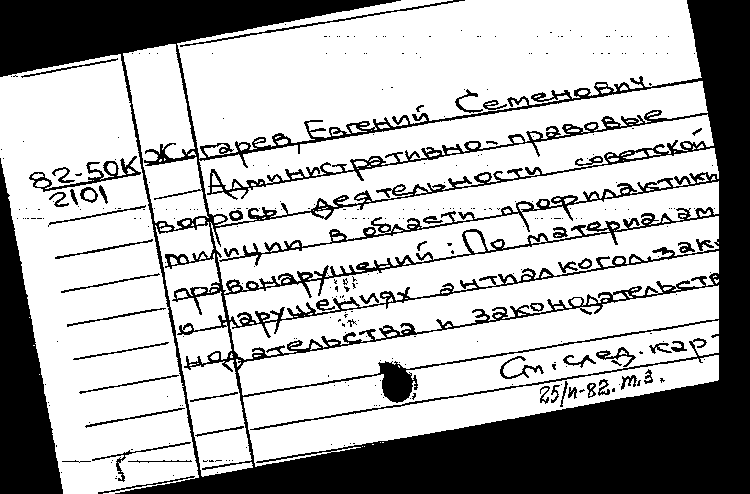 Жигарев, Евгений Семенович.
82-50К
2101
Административно-правовые
вопросы деятельности советской
милиции в области профилактики
правонарушений: По материалам
о нарушениях антиалкогол. зако-
нодательства и законодательств
См. след. кар-
25/II-82. т.з.